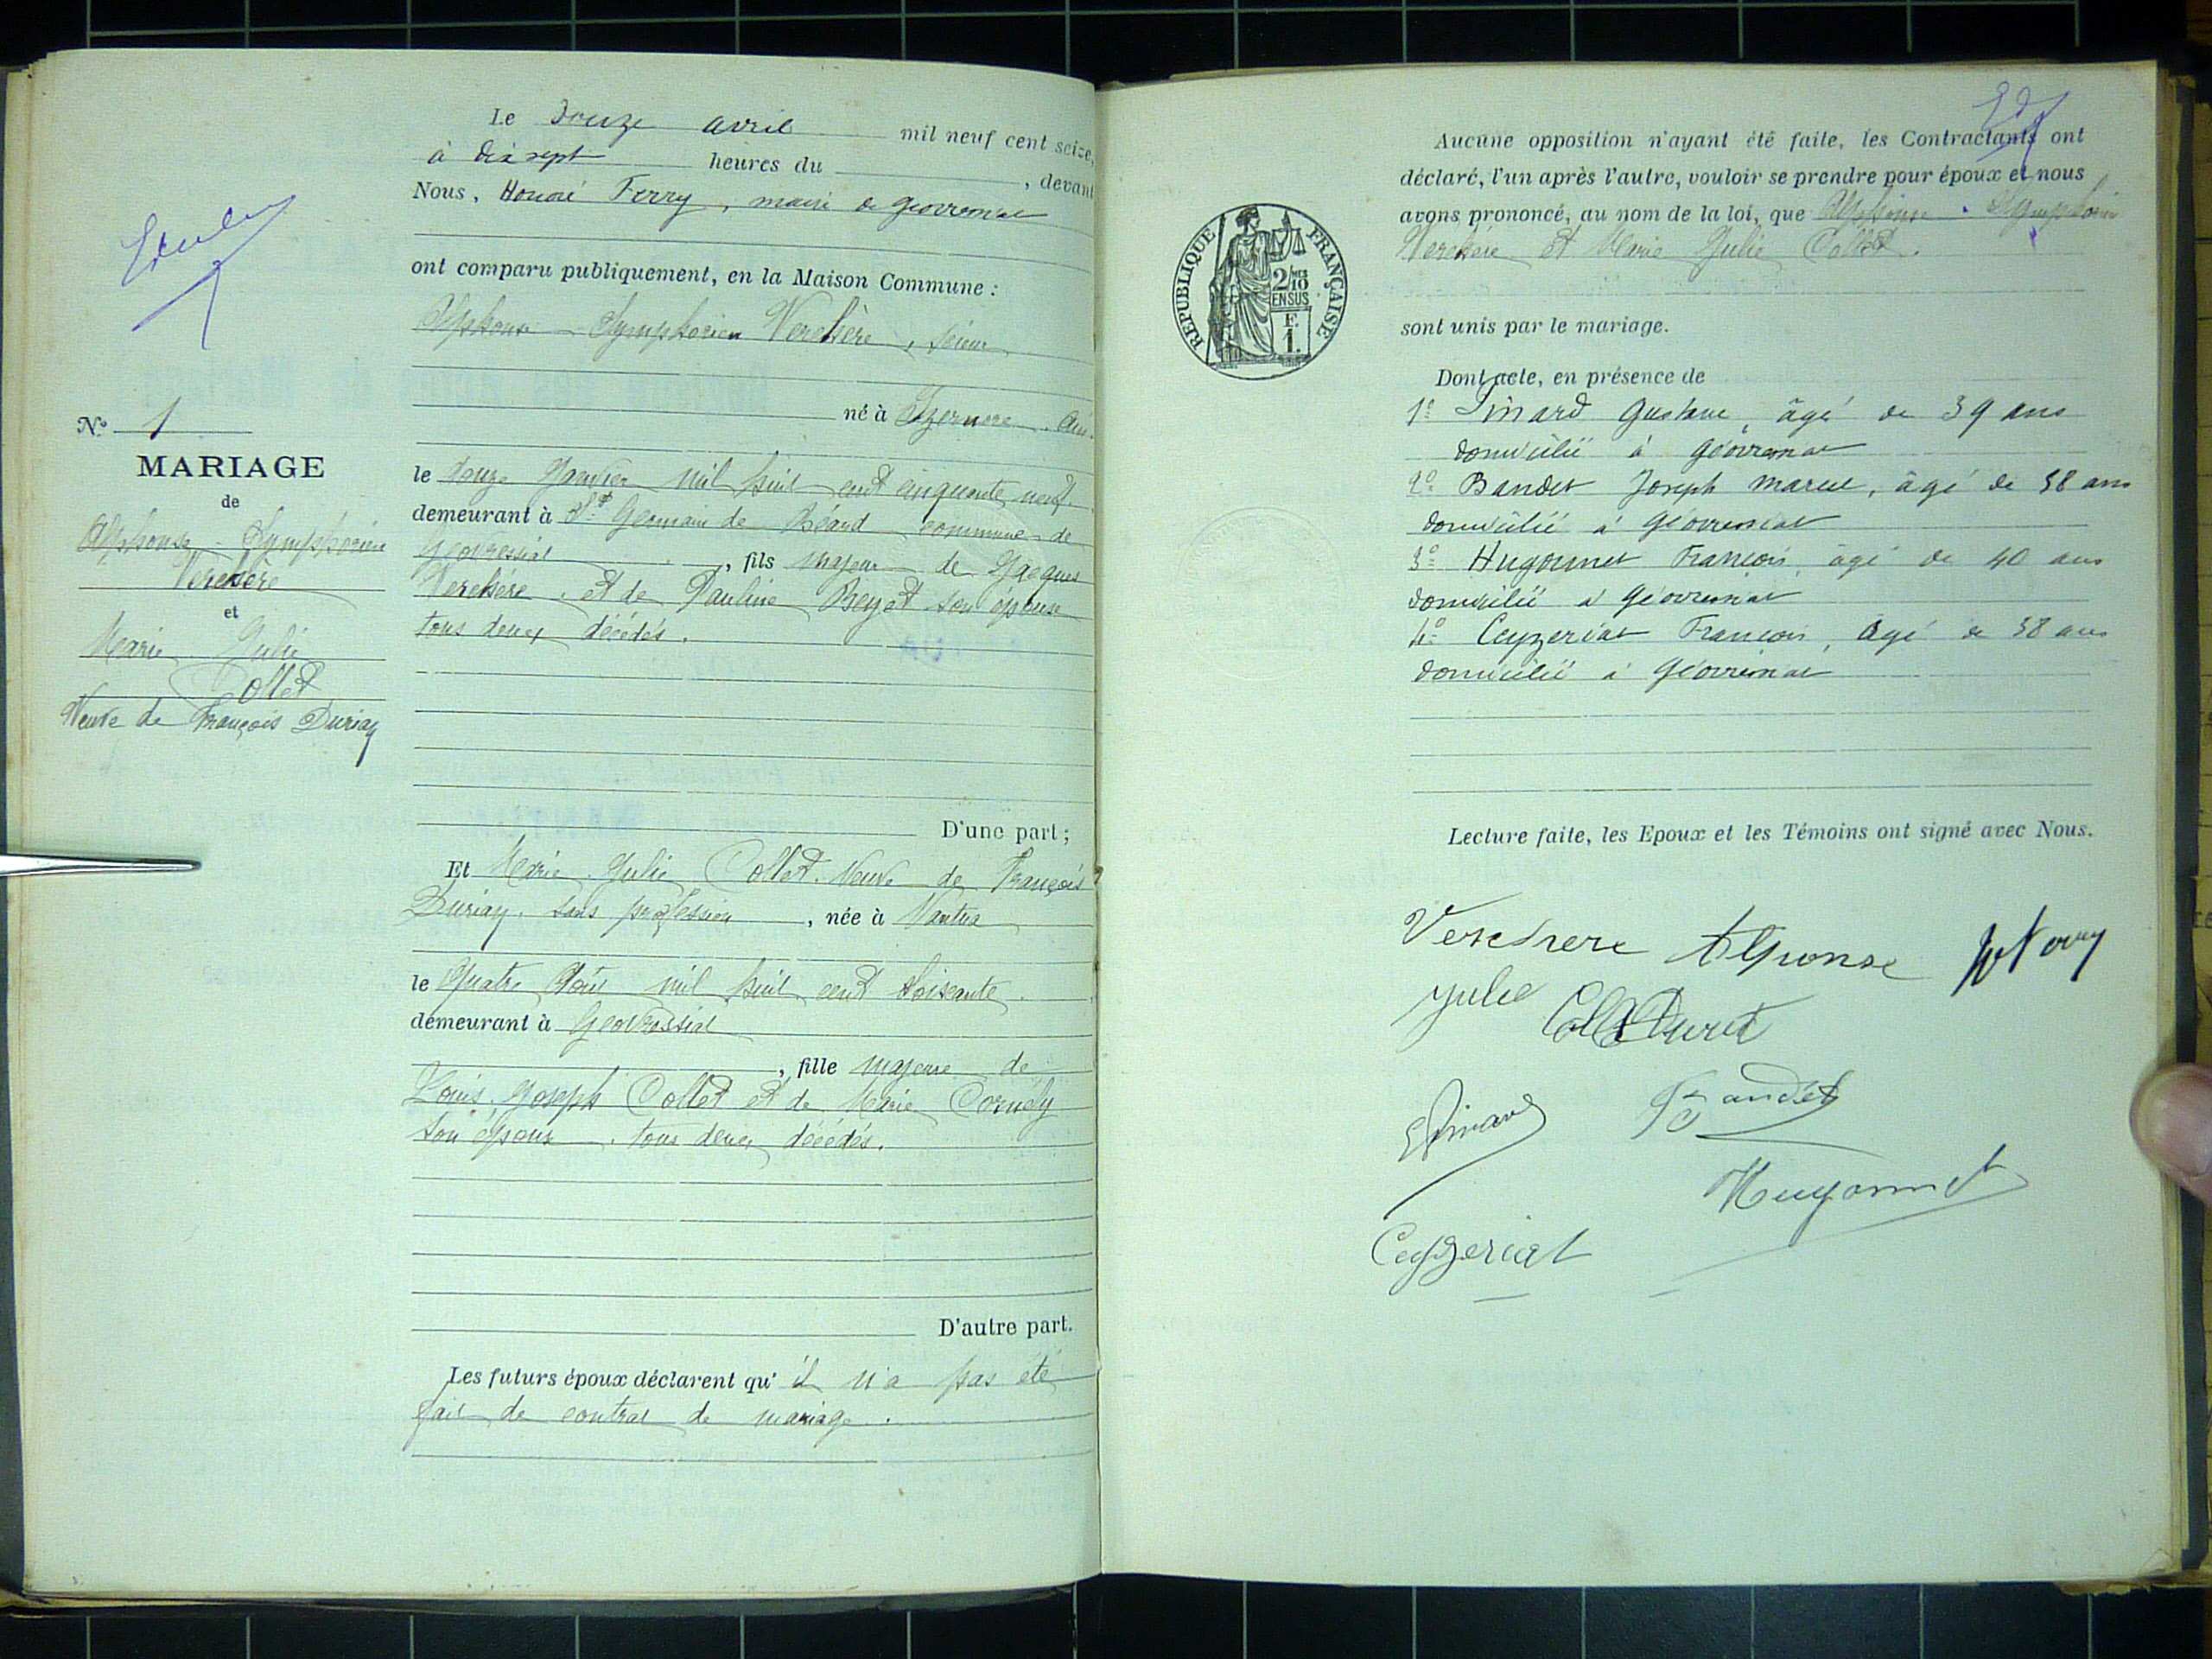 N° 1
MARIAGE
de
Alphonse - Symphorien
Verchère
et
Marie Julie
Collet
Veuve de François Duriay
Le douze avril mil neuf cent seize,
à dix sept heures du , devant
Nous, Honoré Ferry, maire de Géovreissiat
ont comparu publiquement, en la Maison Commune :
Alphonse - Symphorien Verchère, scieur
né à Izernore . Ain.
le douze Janvier mil huit cent cinquante neuf.
demeurant à St Germain de Béard commune de
Géovressiat , fils majeur de Jacques
Verchère . et de Pauline Beyet son épouse
tous deux décédés.
D'une part ;
Et Marie Julie Collet. Veuve de François
Duriay. sans profession , née à Nantua
le quatre Août mil huit cent soixante.
demeurant à Géovressiat
, fille majeure de
Louis Joseph Collet et de Marie Cornély
son épouse . tous deux décédés.
D'autre part.
Les futurs époux déclarent qu' il n'a pas été
fait de contrat de mariage.
REPUBLIQUE FRANÇAISE
2/10
EN SUS
F.
1.
Aucune opposition n'ayant été faite, les Contractants ont
déclaré, l'un après l'autre, vouloir se prendre pour époux et nous
avons prononcé, au nom de la loi, que Alphonse - Symphorien
Verchère et Marie Julie Collet.
sont unis par le mariage.
Dont acte, en présence de
1° Pinard Gustave, âgé de 39 ans
domicilié à Géovreissiat
2° Bandet Joseph Marcel, âgé de 58 ans
domicilié à Géovreissiat
3° Hugonnet François, âgé de 40 ans
domicilié à Géovreissiat
4° Ceyzeriat François, âgé de 58 ans
domicilié à Géovreissiat
Lecture faite, les Epoux et les Témoins ont signé avec Nous.
Verchere Alphonse
Julie Collet
Pinard
Bandet
Hugonnet
Ceyzeriat